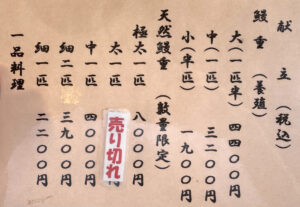 献立(税込)
鰻重(養殖)
大(一匹半) 四四〇〇円
中(一匹) 三二〇〇円
小(半匹) 一九〇〇円
天然鰻重(数量限定)
極太一匹 八 〇〇円
太一匹 円
売り切れ
中一匹 四〇〇〇円
細二匹 三九〇〇円
細一匹 二二〇〇円
一品料理